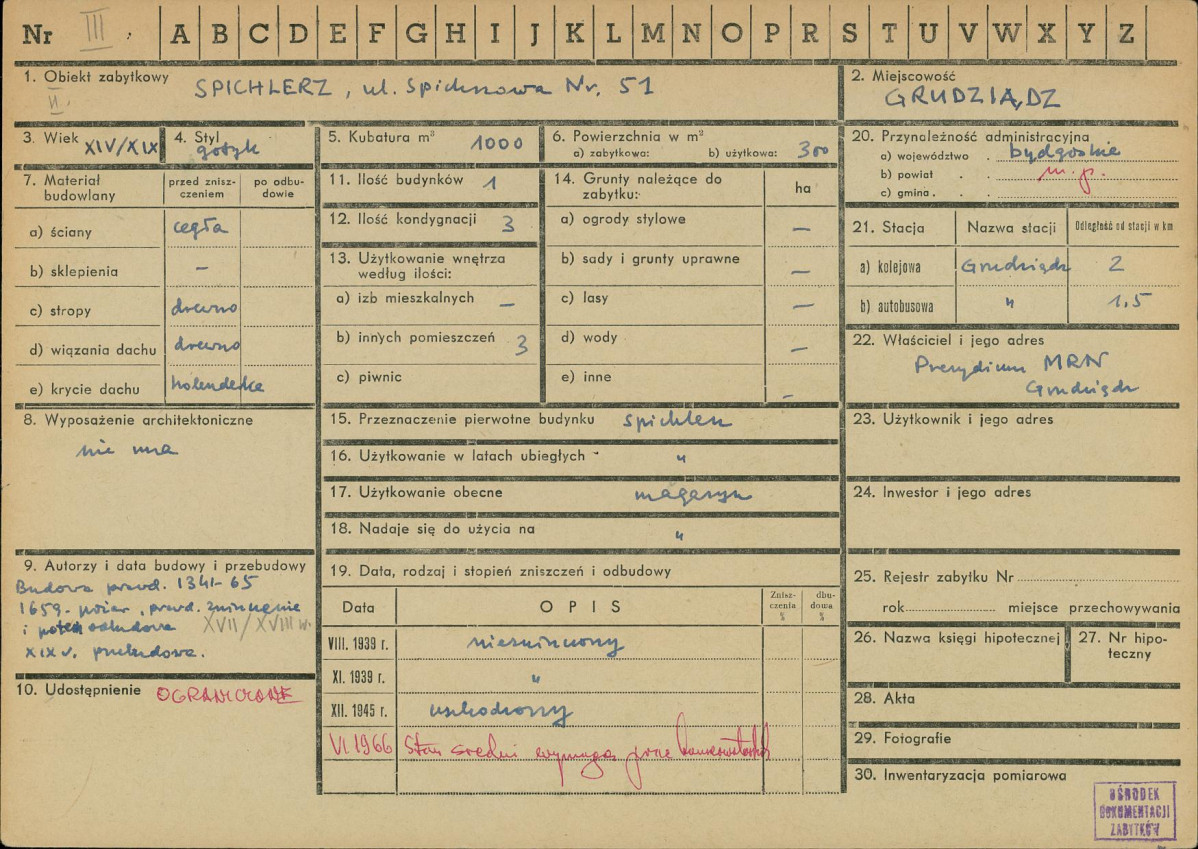 Nr III A B C D E F G H I J K L M N O P R S T U V W X Y Z
1. Obiekt zabytkowy SPICHLERZ, ul. Spichrzowa Nr. 51
II
2. Miejscowość
GRUDZIĄDZ
3. Wiek XIV/XIX
4. Styl
gotyk
5. Kubatura m³ 1000
6. Powierzchnia w m²
a) zabytkowa: b) użytkowa: 300
7. Materiał budowlany
przed znisz-
czeniem
po odbu-
dowie
a) ściany cegła
b) sklepienia –
c) stropy drewno
d) wiązania dachu drewno
e) krycie dachu holenderka
8. Wyposażenie architektoniczne
nie ma
9. Autorzy i data budowy i przebudowy
Budowa prawd. 1341-65
1659 - pożar, prawd. zniszczenie
i potem odbudowa XVII/XVIII w.
XIX w. przebudowa.
10. Udostępnienie OGRANICZONE
11. Ilość budynków 1
12. Ilość kondygnacji 3
13. Użytkowanie wnętrza
według ilości:
a) izb mieszkalnych –
b) innych pomieszczeń 3
c) piwnic
14. Grunty należące do
zabytku:
ha
a) ogrody stylowe –
b) sady i grunty uprawne –
c) lasy –
d) wody –
e) inne –
15. Przeznaczenie pierwotne budynku spichlerz
16. Użytkowanie w latach ubiegłych "
17. Użytkowanie obecne magazyn
18. Nadaje się do użycia na "
19. Data, rodzaj i stopień zniszczeń i odbudowy
Data OPIS
Znisz-
czenia
%
dbu-
dowa
%
VIII. 1939 r. niezniszczony
XI. 1939 r. "
XII. 1945 r. uszkodzony
VI. 1966 Stan średni wymaga prac konserwatorskich
20. Przynależność administracyjna
a) województwo . bydgoskie
b) powiat . . m.p.
c) gmina . .
21. Stacja Nazwa stacji Odległość od stacji w km
a) kolejowa Grudziądz 2
b) autobusowa " 1,5
22. Właściciel i jego adres
Prezydium MRN
Grudziądz
23. Użytkownik i jego adres
24. Inwestor i jego adres
25. Rejestr zabytku Nr
rok miejsce przechowywania
26. Nazwa księgi hipotecznej
27. Nr hipo-
teczny
28. Akta
29. Fotografie
30. Inwentaryzacja pomiarowa
OŚRODEK
DOKUMENTACJI
ZABYTKÓW